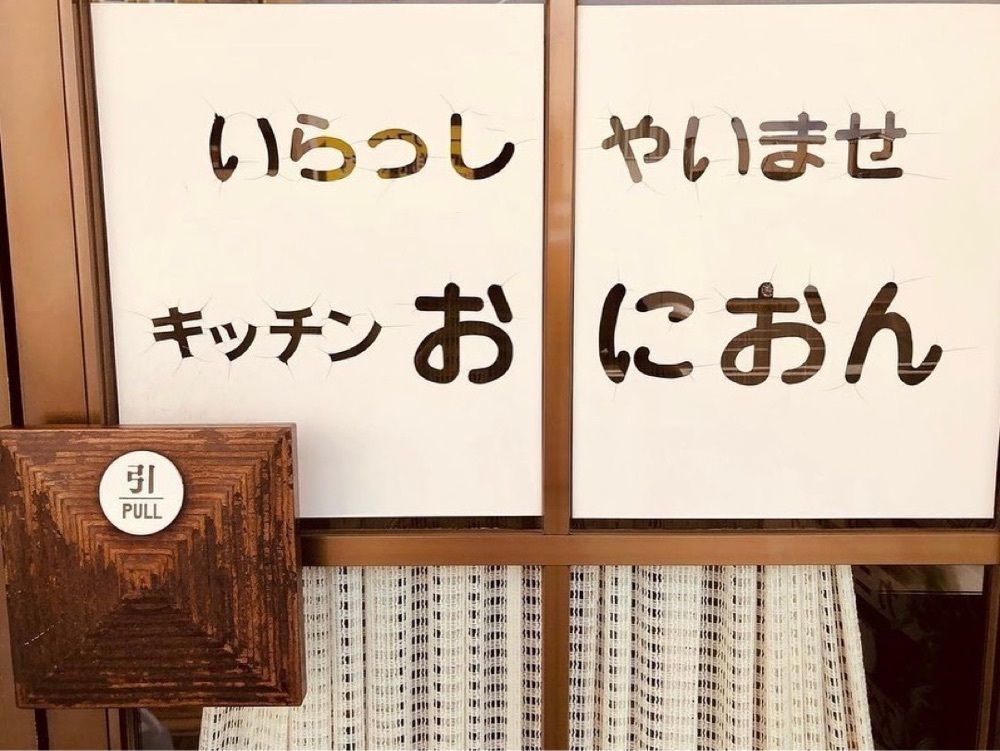 いらっしやいませ
キッチンおにおん
引
PULL